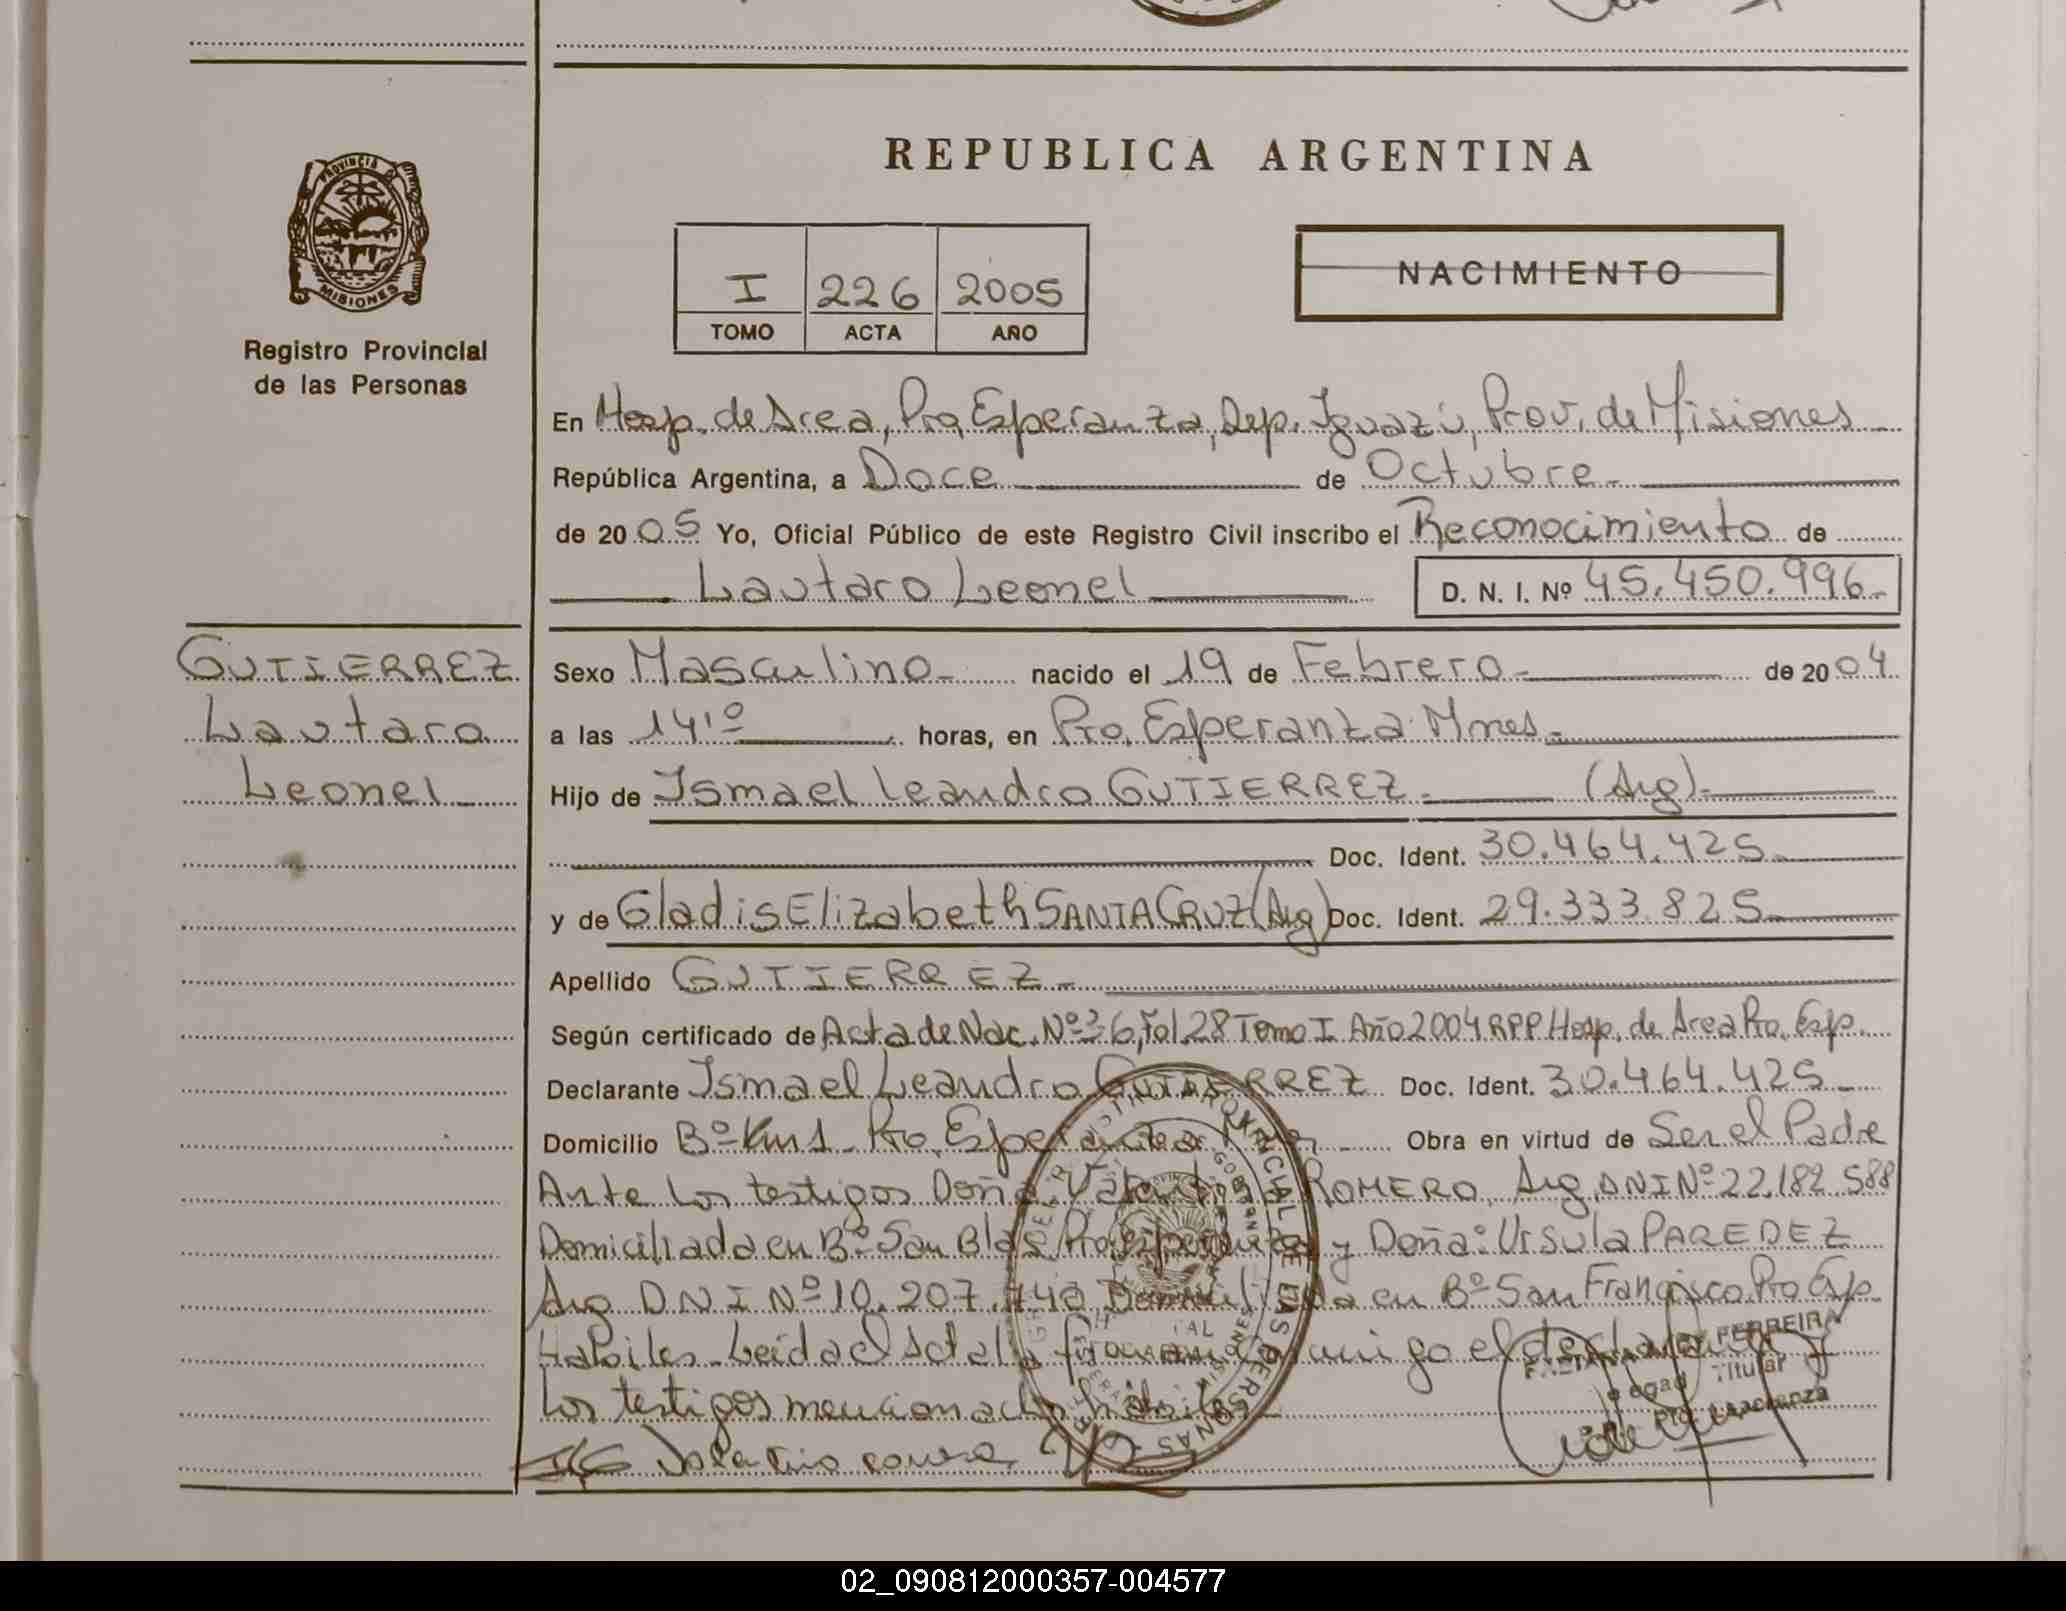 REPUBLICA ARGENTINA
PROVINCIA D
MISIONES
Registro Provincial
de las Personas
I 226 2005
TOMO ACTA AÑO
NACIMIENTO
En Hosp. de Area, Pto. Esperanza, Dep. Iguazú, Prov. de Misiones
República Argentina, a Doce de Octubre
de 2005 Yo, Oficial Público de este Registro Civil inscribo el Reconocimiento de
Lautaro Leonel D. N. I. Nº 45.450.996.-
GUTIERREZ
Lautaro
Leonel
Sexo Masculino nacido el 19 de Febrero de 2004
a las 14,º horas, en Pto. Esperanza Mnes.
Hijo de Ismael Leandro GUTIERREZ (Arg)
Doc. Ident. 30.464.425
y de Gladis Elizabeth SANTA CRUZ (Arg) Doc. Ident. 29.333.825
Apellido GUTIERREZ
Según certificado de Acta de Nac. Nº 36, Fol. 28 Tomo I Año 2004 RPP Hosp. de Area Pto. Esp.
Declarante Ismael Leandro GUTIERREZ Doc. Ident. 30.464.425
Domicilio Bº Km 1 Pto. Esperanza Obra en virtud de Ser el Padre
Ante los testigos Doña: ROMERO, Arg, DNI Nº 22.182.588
Domiciliada en Bº San Blas Pto. Esperanza y Doña: Ursula PAREDEZ
Arg DNI Nº 10.207.740 Domiciliada en Bº San Francisco Pto Esp.
Habiles. Leida el Acta la firman conmigo el declarante y
los testigos mencionados habiles
FERREIRA
Titular
02_090812000357-004577